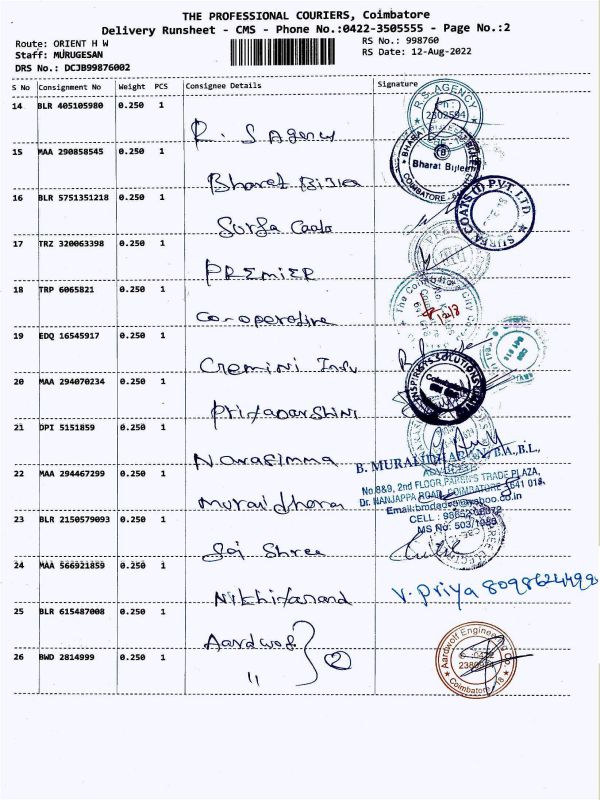 THE PROFESSIONAL COURIERS, Coimbatore
Delivery Runsheet - CMS - Phone No.:0422-3505555 - Page No.:2
Route: ORIENT H W
RS No.: 998760
Staff: MURUGESAN
RS Date: 12-Aug-2022
DRS No.: DCJB99876002
S No Consignment No Weight PCS Consignee Details Signature
14 BLR 405105980 0.250 1
R. S Agency
R.S. AGENCY
15 MAA 290858545 0.250 1
Bharat Bijlee
Bharat Bijlee
COIMBATORE
16 BLR 5751351218 0.250 1
Surfa Coats
SURFA COATS (I) PVT. LTD
17 TRZ 320063398 0.250 1
PREMIER
18 TRP 6065821 0.250 1
Co-operative
19 EDQ 16545917 0.250 1
20 MAA 294070234 0.250 1
Priyadarshini
INSPIRISYS SOLUTIONS
21 DPI 5151859 0.250 1
Narasimma
22 MAA 294467299 0.250 1
Muralidharan
B. MURALIDHARAN, B.A.,B.L.,
ADVOCATE
No.8&9, 2nd FLOOR, PAREN'S TRADE PLAZA,
Dr. NANJAPPA ROAD, COIMBATORE - 641 018.
23 BLR 2150579093 0.250 1
Sai Shree
MS No: 503/1989
24 MAA 566921859 0.250 1
Nikhilanand
V. Priya 8098624499
25 BLR 615487008 0.250 1
Aardwolf
26 BWD 2814999 0.250 1
" 2
Aardwolf Engineering Co.
Coimbatore - 18